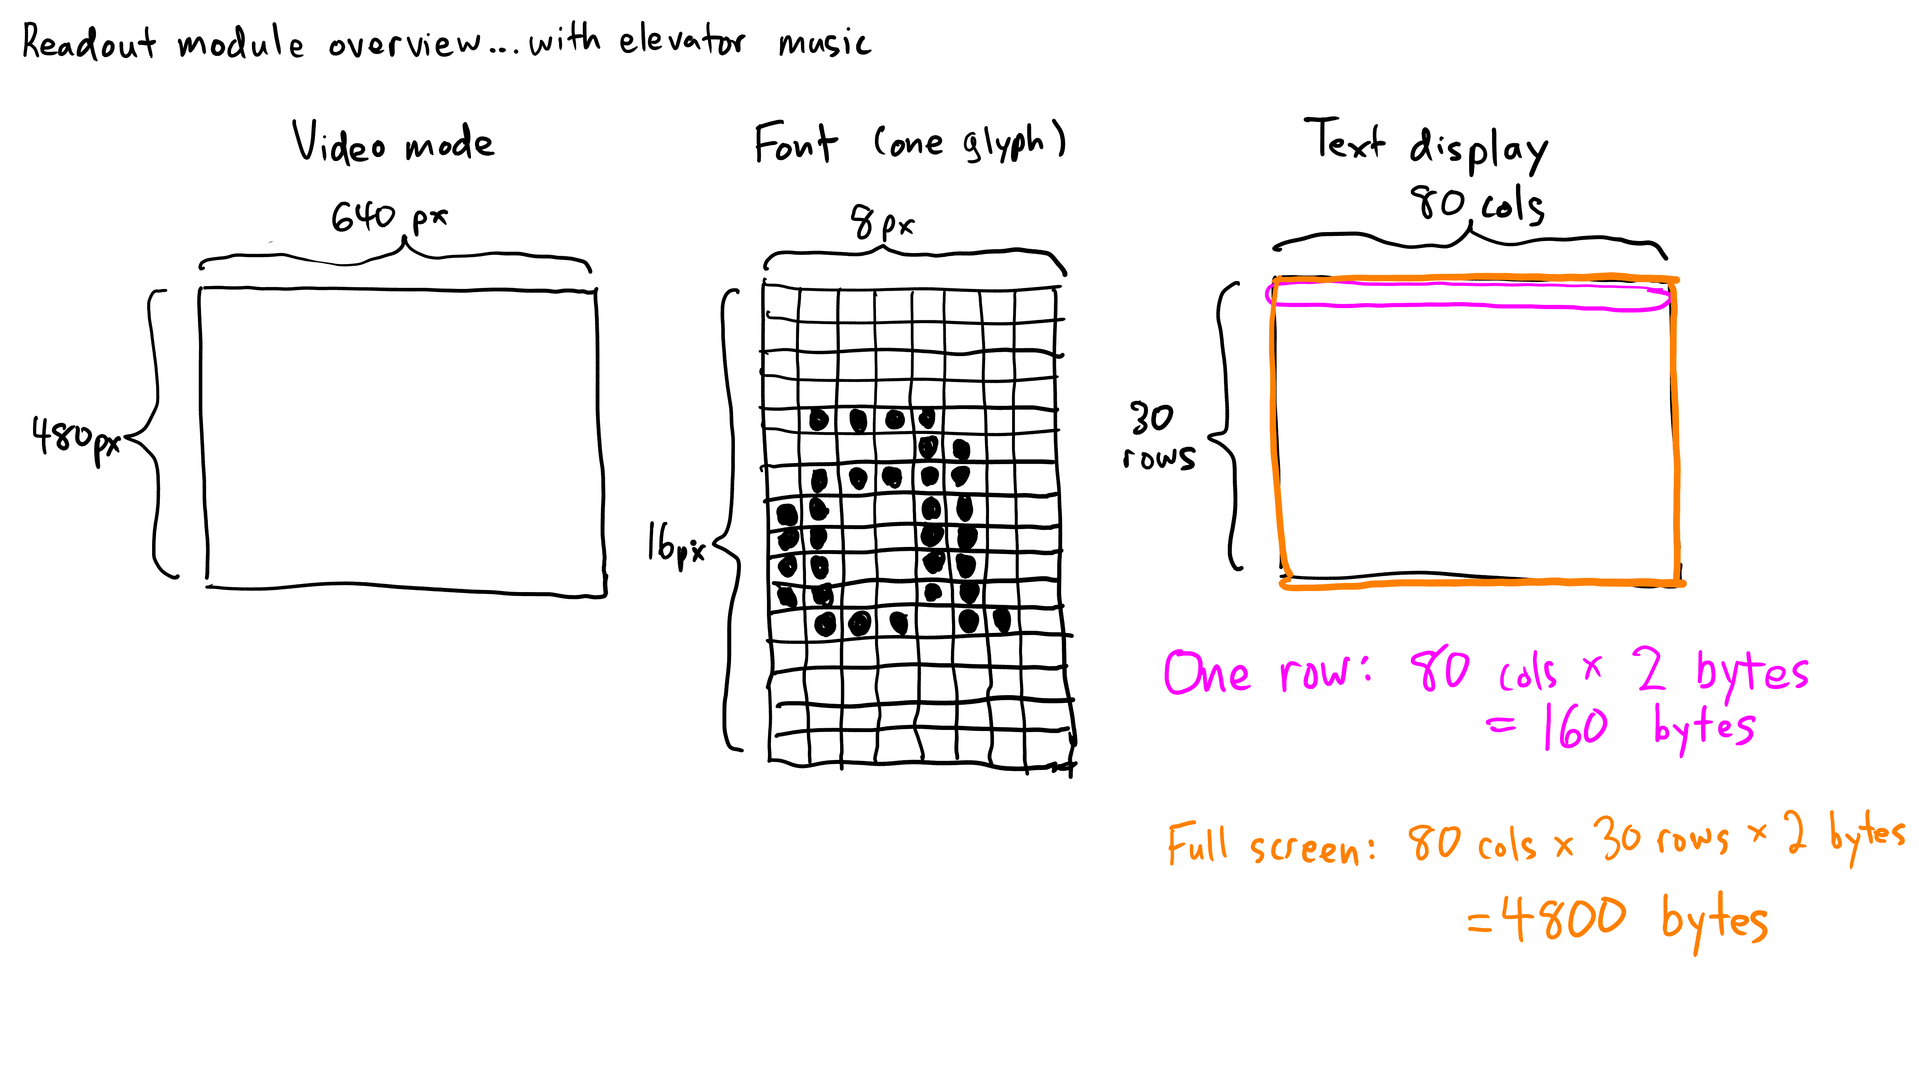 Readout module overview...with elevator music
Video mode
640 px
480px
Font (one glyph)
8px
16px
Text display
80 cols
30
rows
One row: 80 cols × 2 bytes
= 160 bytes
Full screen: 80 cols × 30 rows × 2 bytes
= 4800 bytes